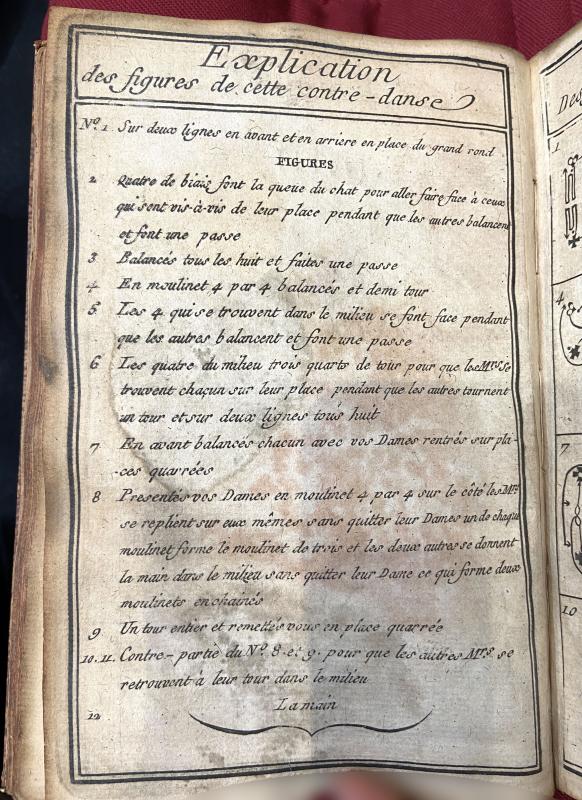 Explication
des figures de cette contre-danse
Nº. 1 Sur deux lignes en avant et en arriere en place du grand rond
FIGURES
2 Quatre de biais font la queue du chat pour aller faire face à ceux
qui sont vis-à-vis de leur place pendant que les autres balancent
et font une passe
3 Balancés tous les huit et faites une passe
4 En moulinet 4 par 4 balancés et demi tour
5 Les 4 qui se trouvent dans le milieu se font face pendant
que les autres balancent et font une passe
6 Les quatre du milieu trois quarts de tour pour que les Mrs. se
trouvent chaçun sur leur place pendant que les autres tournent
un tour et sur deux lignes tous huit
7 En avant balancés chacun avec vos Dames rentrés sur pla-
-ces quarrées
8 Presentés vos Dames en moulinet 4 par 4 sur le côté les Mrs.
se replient sur eux mêmes sans quitter leur Dames un de chaque
moulinet forme le moulinet de trois et les deux autres se donnent
la main dans le milieu sans quitter leur Dame ce qui forme deux
moulinets enchainés
9 Un tour entier et remettés vous en place quarrée
10. 11. Contre-partie du Nº. 8. et 9. pour que les autres Mrs. se
retrouvent à leur tour dans le milieu
12 La main
De
1
4
7
10